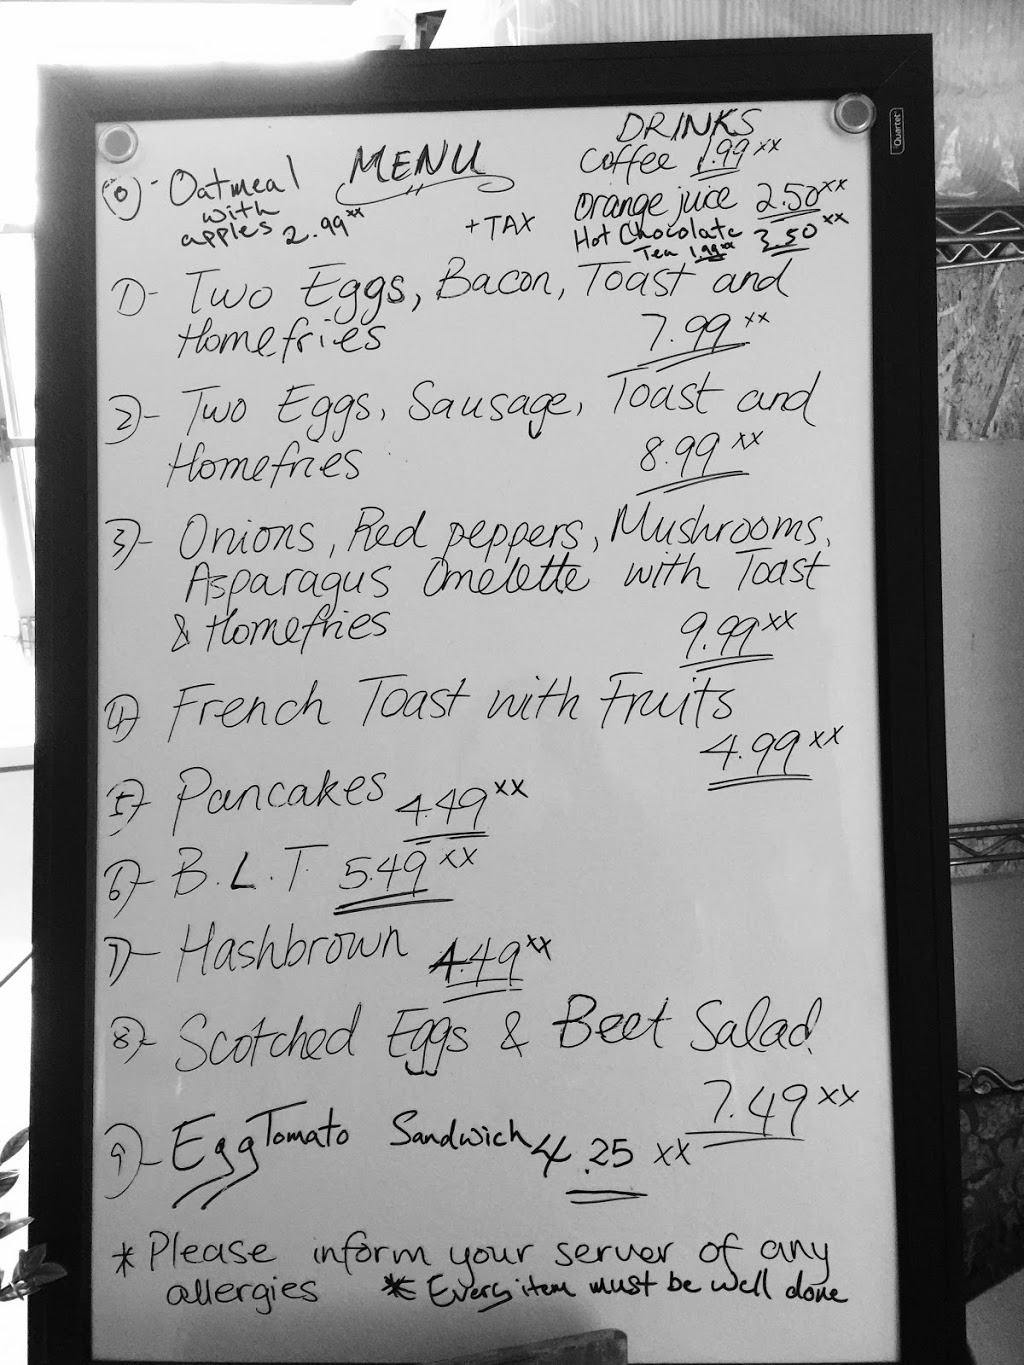 MENU
+TAX
0- Oatmeal
with
apples 2.99xx
DRINKS
Coffee 1.99xx
Orange juice 2.50xx
Hot Chocolate
Tea 1.99xx
1- Two Eggs, Bacon, Toast and
Homefries 7.99xx
2- Two Eggs, Sausage, Toast and
Homefries 8.99xx
3- Onions, Red peppers, Mushrooms,
Asparagus Omelette with Toast
& Homefries 9.99xx
4- French Toast with Fruits
4.99xx
5- Pancakes 4.49xx
6- B.L.T. 5.49xx
7- Hashbrown 4.49xx
8- Scotched Eggs & Beet Salad
7.49xx
9- Egg Tomato Sandwich 4.25 xx
* Please inform your server of any
allergies * Every item must be well done
Quartet